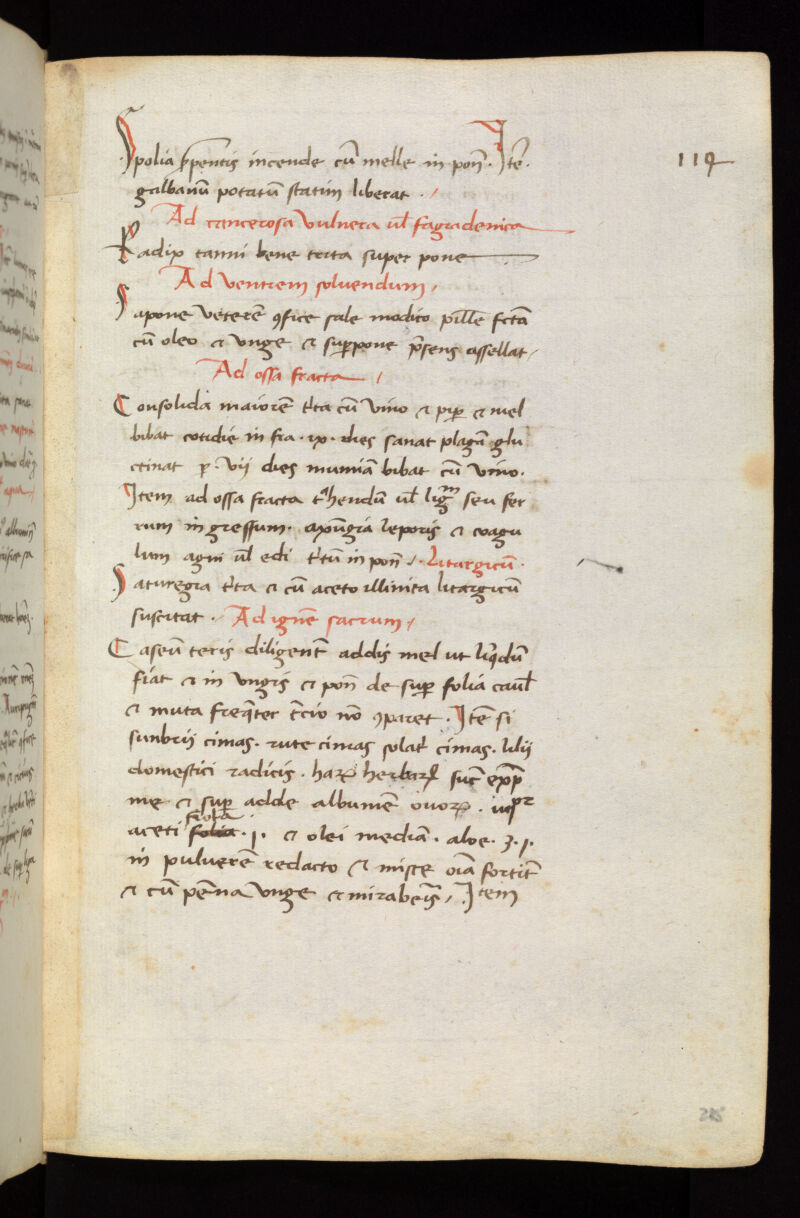 Spolia ẜpentis incende cū melle in̄ poñ · Itē ·
119
galbanū potatū statim liberat ·
Ad cancerosa vulnera ul̄ fagradenica
Radix tanni bene trita super pone
Ad ventrem soluendum
Sapone veterē ꝯfice sale modico pille fctā
cū oleo & vnge & suꝑpone p̄sens assellat
Ad ossa fracta
Consolida maiorē tͥta cū vino & piꝑ & mel
bibat cotidie in fra · ix · dies sanat plagā glu
ctinat p · vii dies mumiā bibat cū vino ·
Item ad ossa fracta tͣhendū ul̄ lignͫ seu fer
rum in gressum · axūgia leporis & coagu
lum agni ul̄ edi tͥtū in poñ · Litargicū ·
Saturegia tͥta & cū aceto illinita litargicū
suscitat · Ad ignē sacrum
Caseū teris diligent̄ addis mel ut liq̇dū
fiat & in vngis & poñ de suꝑ folia caul̄
& muta freq̄ter t̄cio nō ꝯparet · Itē si
sunbrii cimas · rute cimas solat͛ cimas · lilii
domestici radicis · haꝝ herbaꝝ suc̄ exp̄
me & suꝑ adde albumē ouoꝝ ·
aceti · j · & olei mediā · aloe · ʒ · j ·
in̄ puluerē redacto & misce oīa fortit̄
& cū pēna vnge & mirabeis̄ · Item
225